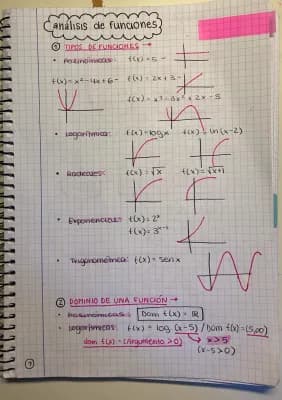 análisis de funciones
① TIPOS DE FUNCIONES →
• Polinómicas: f(x) = 5 -
f(x) = x² - 4x + 6 - f(x) = 2x + 3 -
f(x) = x³ - 3x² + 2x - 5
• Logarítmica: f(x) = log x f(x) = ln (x-2)
• Radicales: f(x) = √x f(x) = √x+1
• Exponenciales: f(x) = 2ˣ
f(x) = 3ˣ⁻¹
• Trigonométrica: f(x) = sen x
② DOMINIO DE UNA FUNCIÓN →
• Polinómicas: Dom f(x) = ℝ
• Logarítmicas: f(x) = log (x-5) / Dom f(x) = (5,∞)
dom f(x) = (Argumento > 0) x>5
(x-5>0)